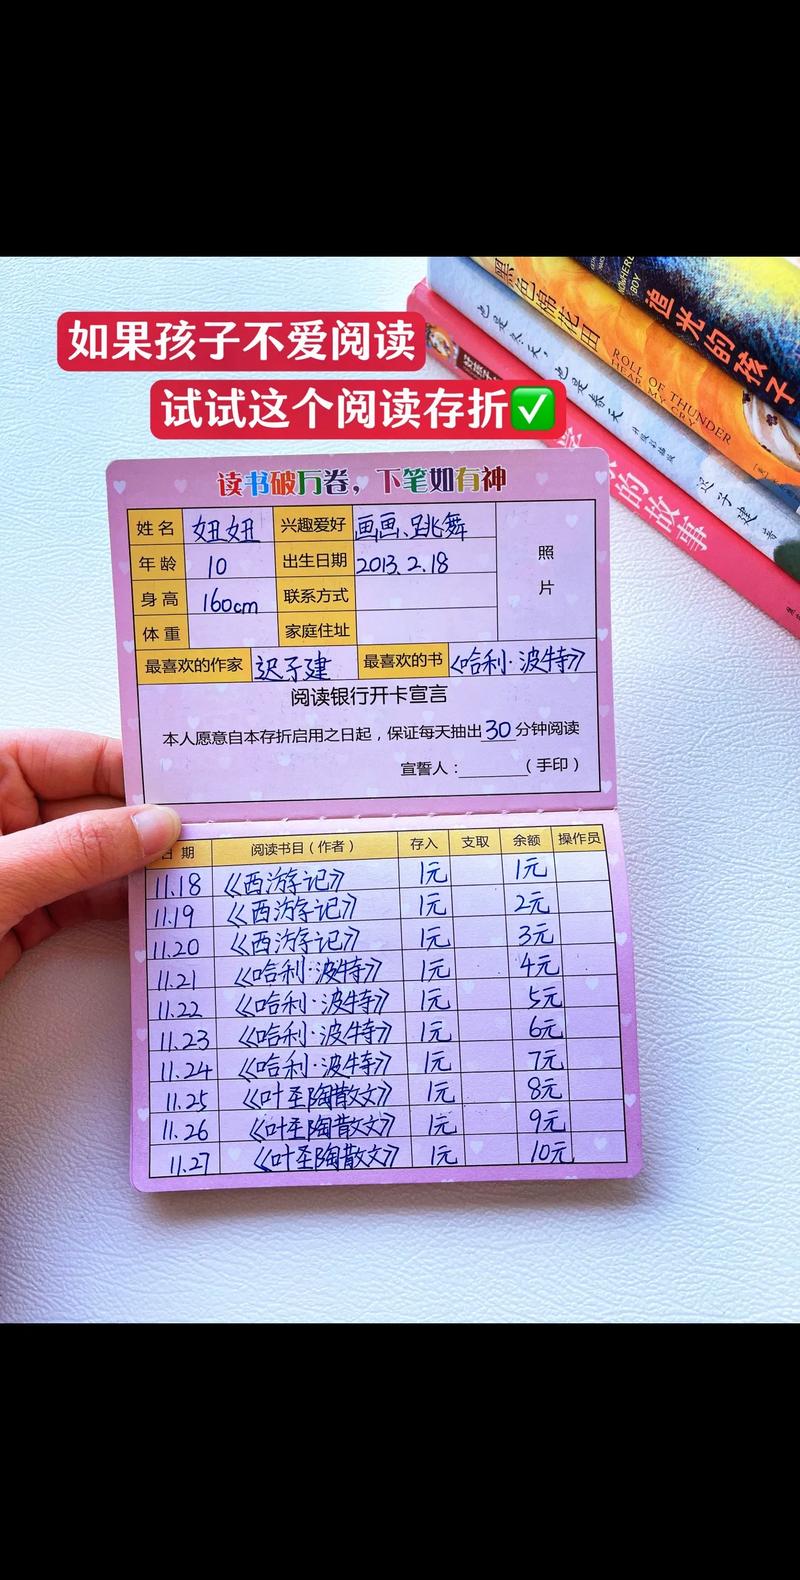 如果孩子不爱阅读
试试这个阅读存折✅
追光的孩子
NOWHERE BOY
黑色棉花田
ROLL OF THUNDER
HEAR MY CRY
也是冬天，也是春天 升级彩插版 迟子建 著
的故事
读书破万卷，下笔如有神
姓名 妞妞 兴趣爱好 画画、跳舞 照片
年龄 10 出生日期 2013.2.18
身高 160cm 联系方式
体重 家庭住址
最喜欢的作家 迟子建 最喜欢的书 《哈利·波特》
阅读银行开卡宣言
本人愿意自本存折启用之日起，保证每天抽出 30 分钟阅读
宣誓人：______（手印）
日期 阅读书目（作者） 存入 支取 余额 操作员
11.18 《西游记》 1元 1元
11.19 《西游记》 1元 2元
11.20 《西游记》 1元 3元
11.21 《哈利·波特》 1元 4元
11.22 《哈利·波特》 1元 5元
11.23 《哈利·波特》 1元 6元
11.24 《哈利·波特》 1元 7元
11.25 《叶圣陶散文》 1元 8元
11.26 《叶圣陶散文》 1元 9元
11.27 《叶圣陶散文》 1元 10元